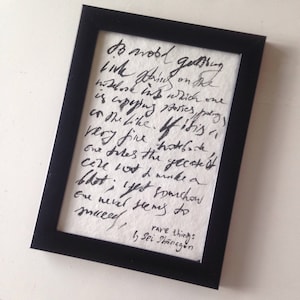 to avoid getting
ink stains on the
notebook into which one
is copying stories, poems
or the like. If it is a
very fine notebook
one takes the greatest
care not to make a
blot; yet somehow
one never seems to
succeed.
rare things
by Sei Shōnagon